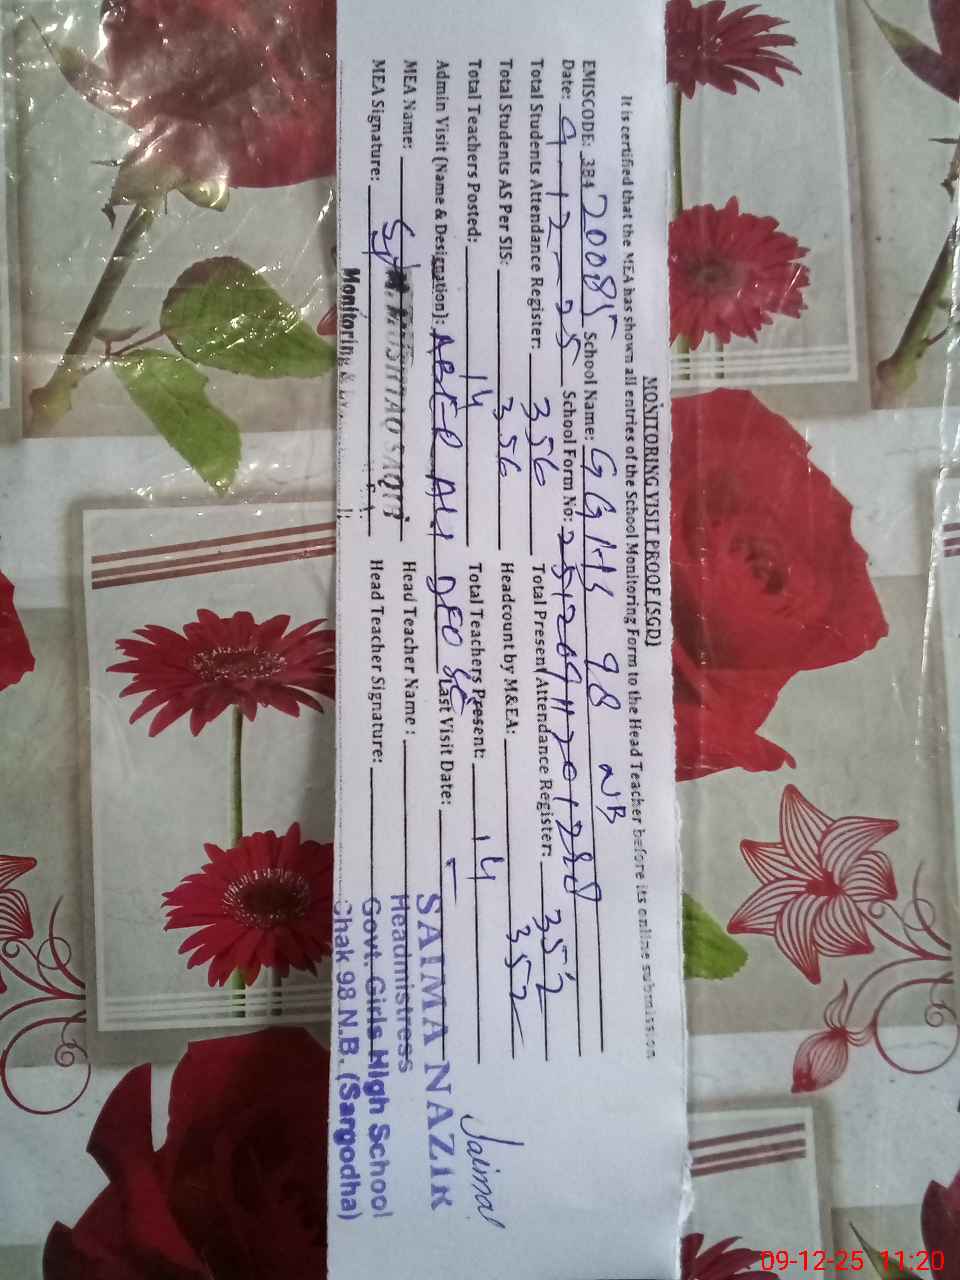 MONITORING VISIT PROOF (SGD)
It is certified that the MEA has shown all entries of the School Monitoring Form to the Head Teacher before its online submission
EMISCODE: 38420085 School Name: GGHS 98 NB
Date: 9-12-25 School Form No:
Total Students Attendance Register: 356 Total Present Attendance Register: 352
Total Students AS Per SIS: 356 Headcount by M&EA: 352
Total Teachers Posted: 14 Total Teachers Present: 14
Admin Visit (Name & Designation): ALI DEO SE Last Visit Date: -
MEA Name: MUSHTAQ SAQIB Head Teacher Name :
MEA Signature: Head Teacher Signature:
Monitoring &
Saima
SAIMA NAZIR
Headmistress
Govt. Girls High School
Chak 98 N.B. (Sargodha)
09-12-25 11:20